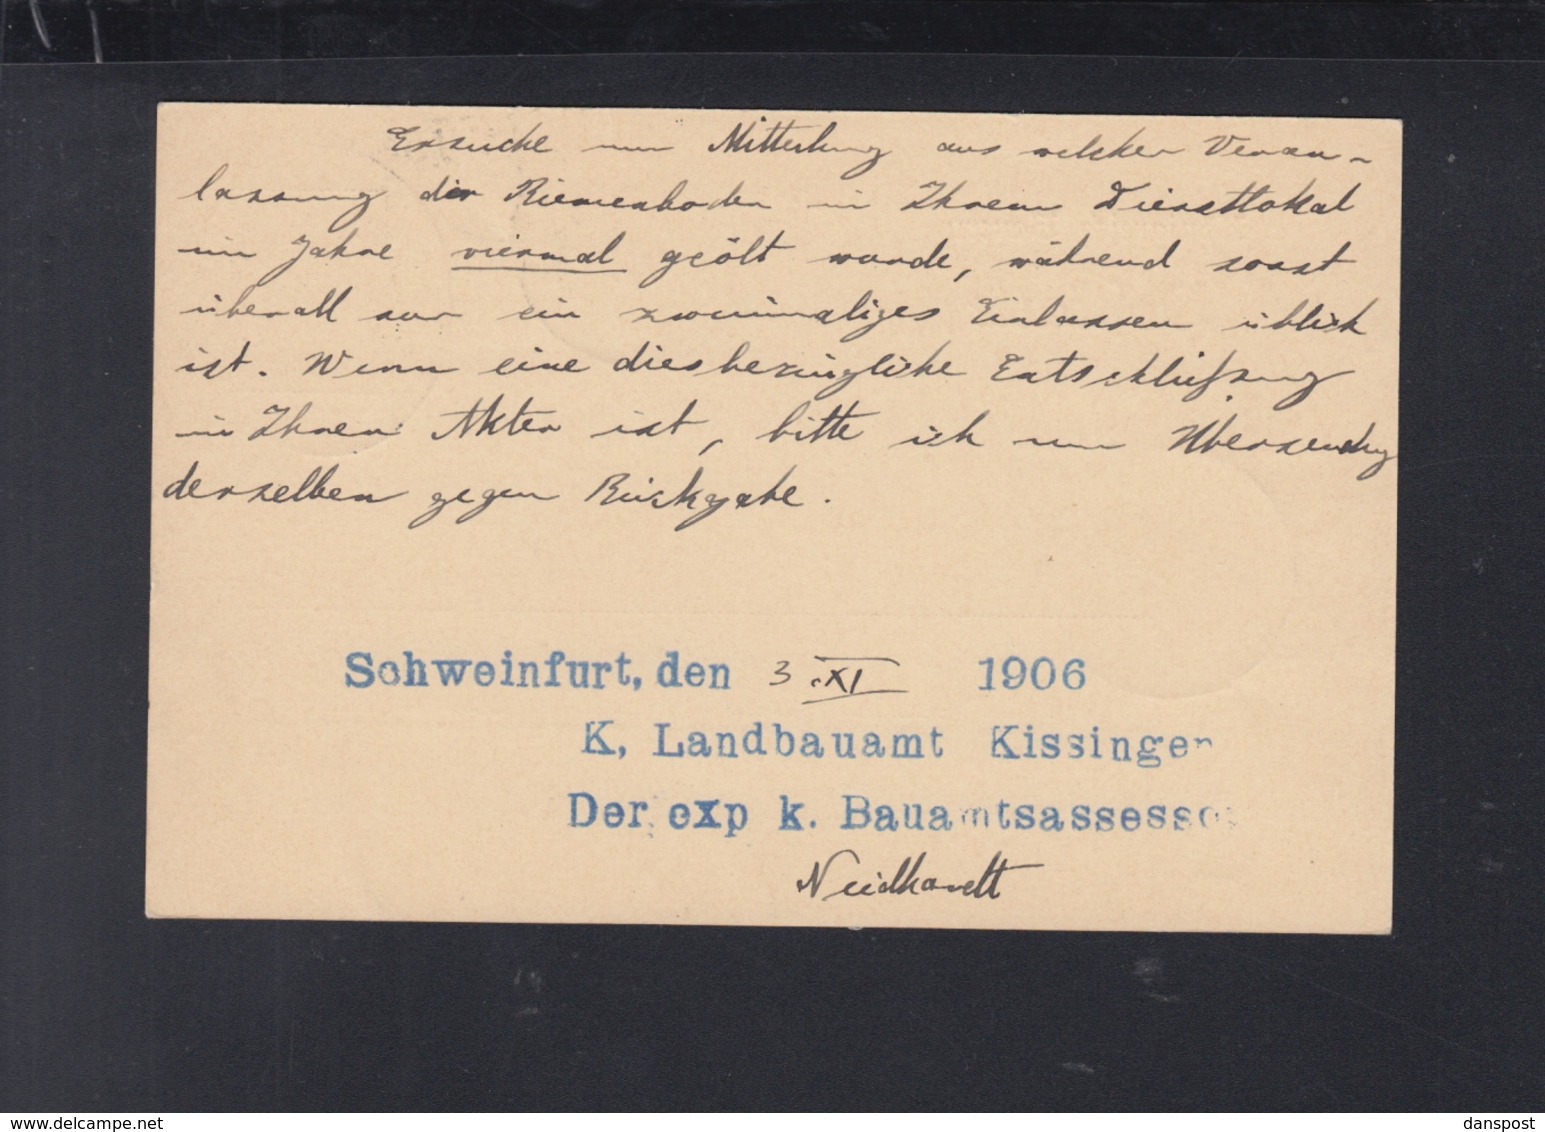 Ersuche um Mitteilung aus welcher Veran-
lassung der Riemenboden in Ihrem Dienstlokal
im Jahre viermal geölt wurde, während sonst
überall nur ein zweimaliges Einlassen üblich
ist. Wenn eine diesbezügliche Entschließung
in Ihren Akten ist, bitte ich um Übersendung
derselben gegen Rückgabe.
Schweinfurt, den 3 XI 1906
K, Landbauamt Kissingen
Der exp k. Bauamtsassessor
Neidhardt
www.delcampe.net
danspost